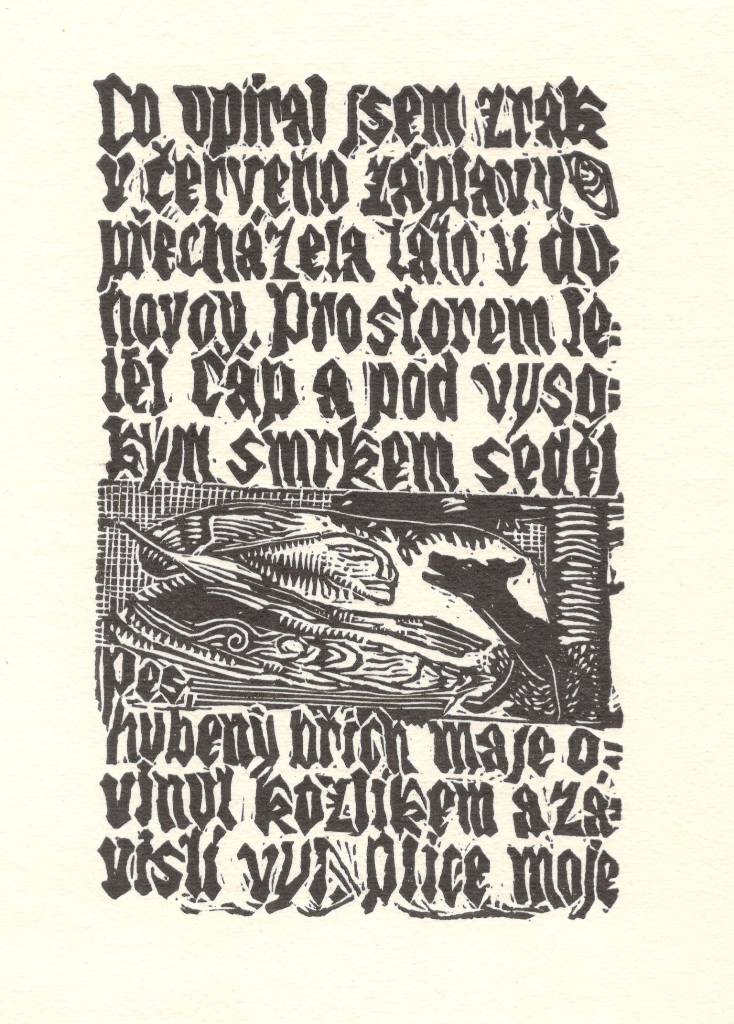 Co upíral jsem zrak
v červeno záplavy
přecházela tato v du-
hovou. Prostorem le-
těl čáp a pod vyso-
kým smrkem seděl
pes
hubený břich maje o-
vinut kozlíkem a zá-
vislí vyl. Plíce moje